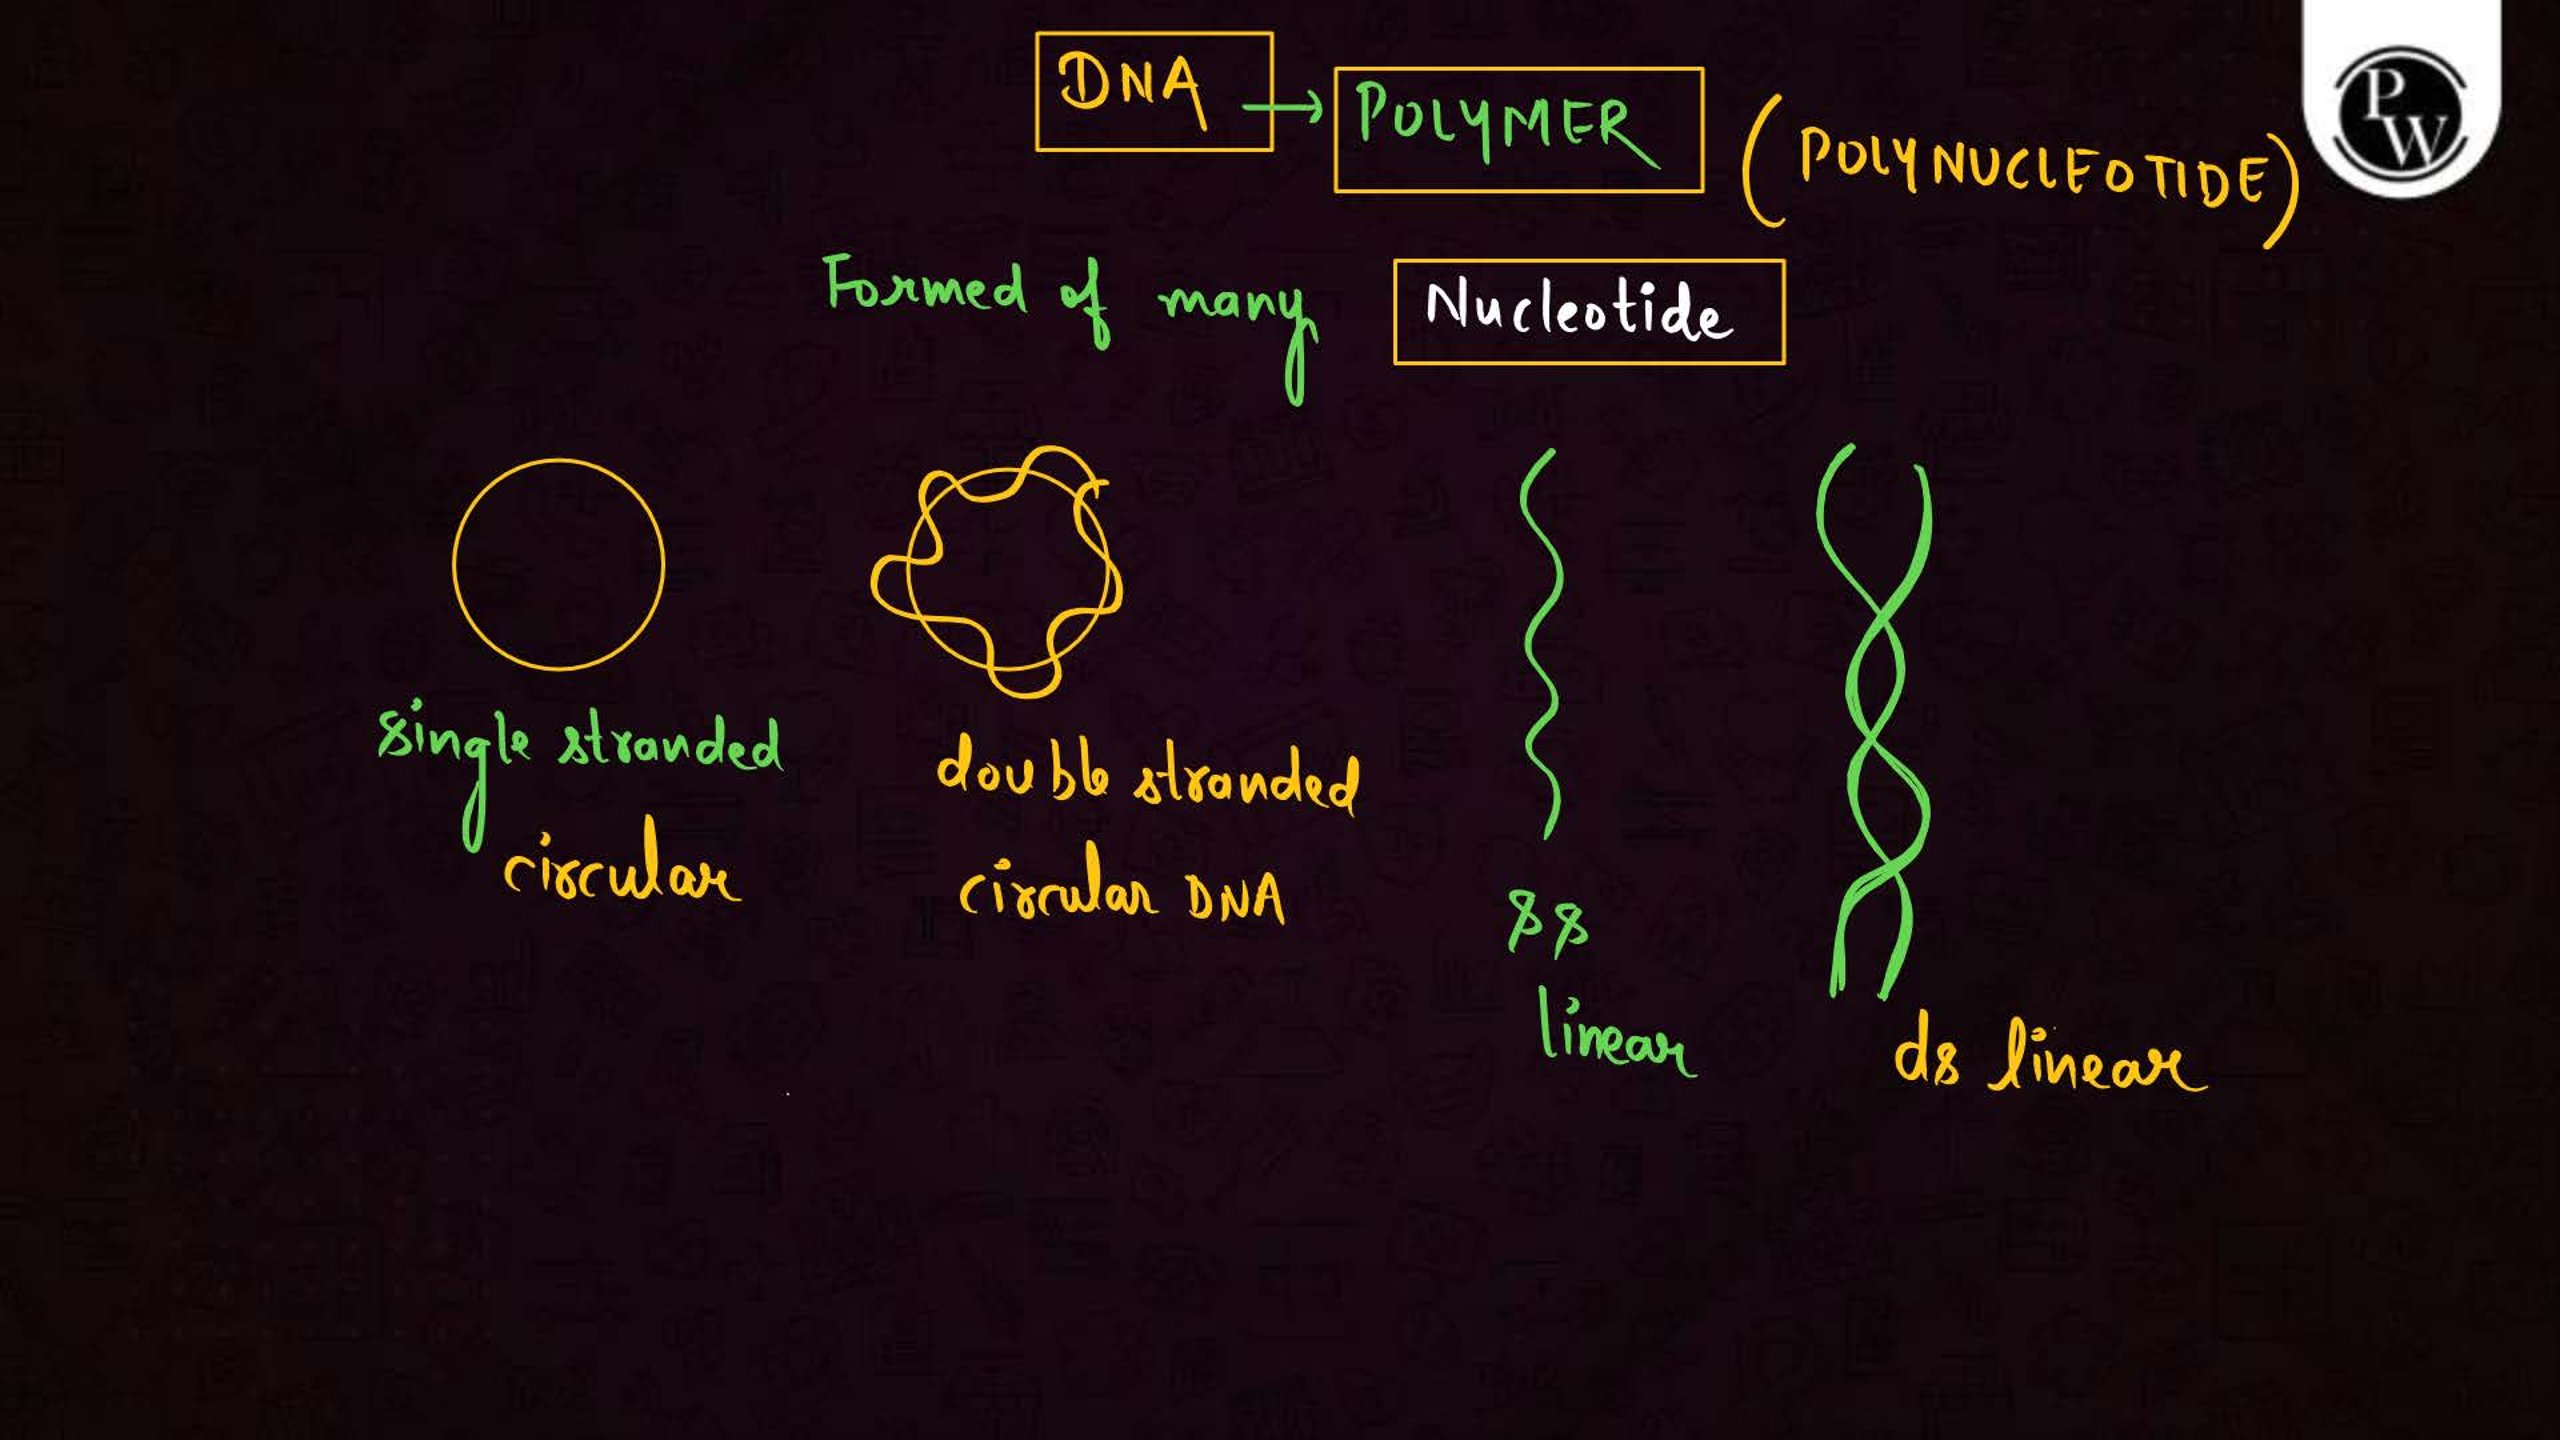 DNA → POLYMER (POLYNUCLEOTIDE)
PW
Formed of many Nucleotide
single stranded
circular
double stranded
circular DNA
ss
linear
ds linear